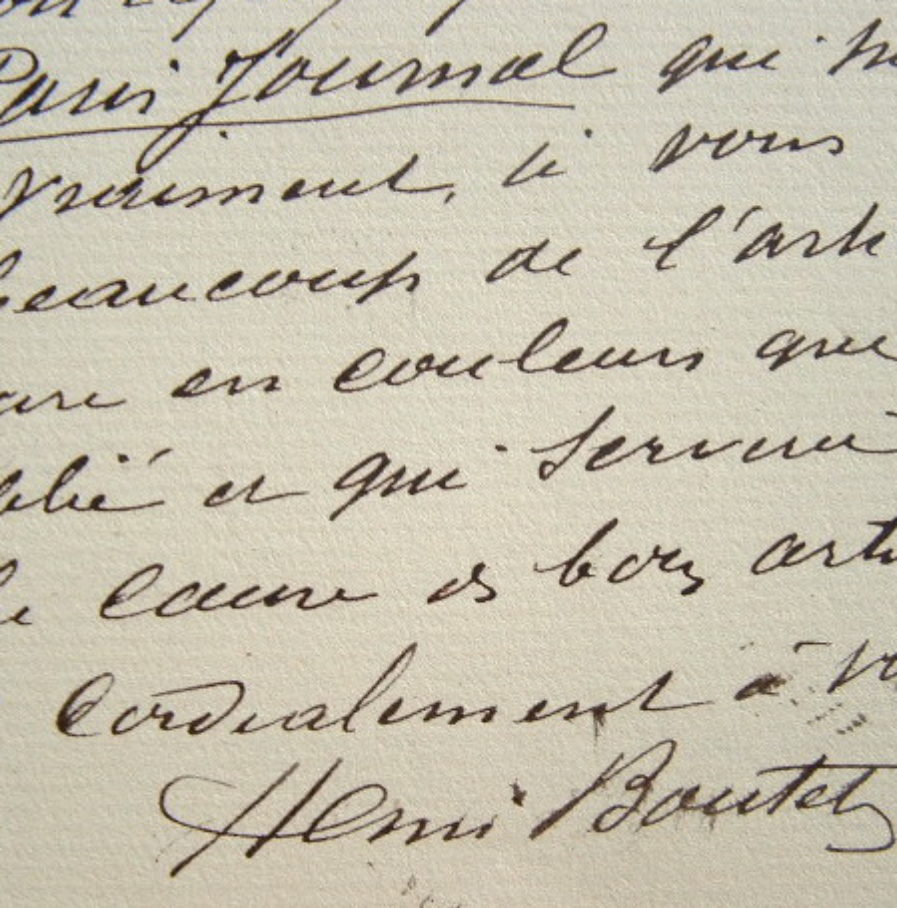 Paris Journal qui
vraiment, si vous
beaucoup de l'art
en couleurs que
et qui
cause des bons arti
Cordialement à vo
Henri Boutet